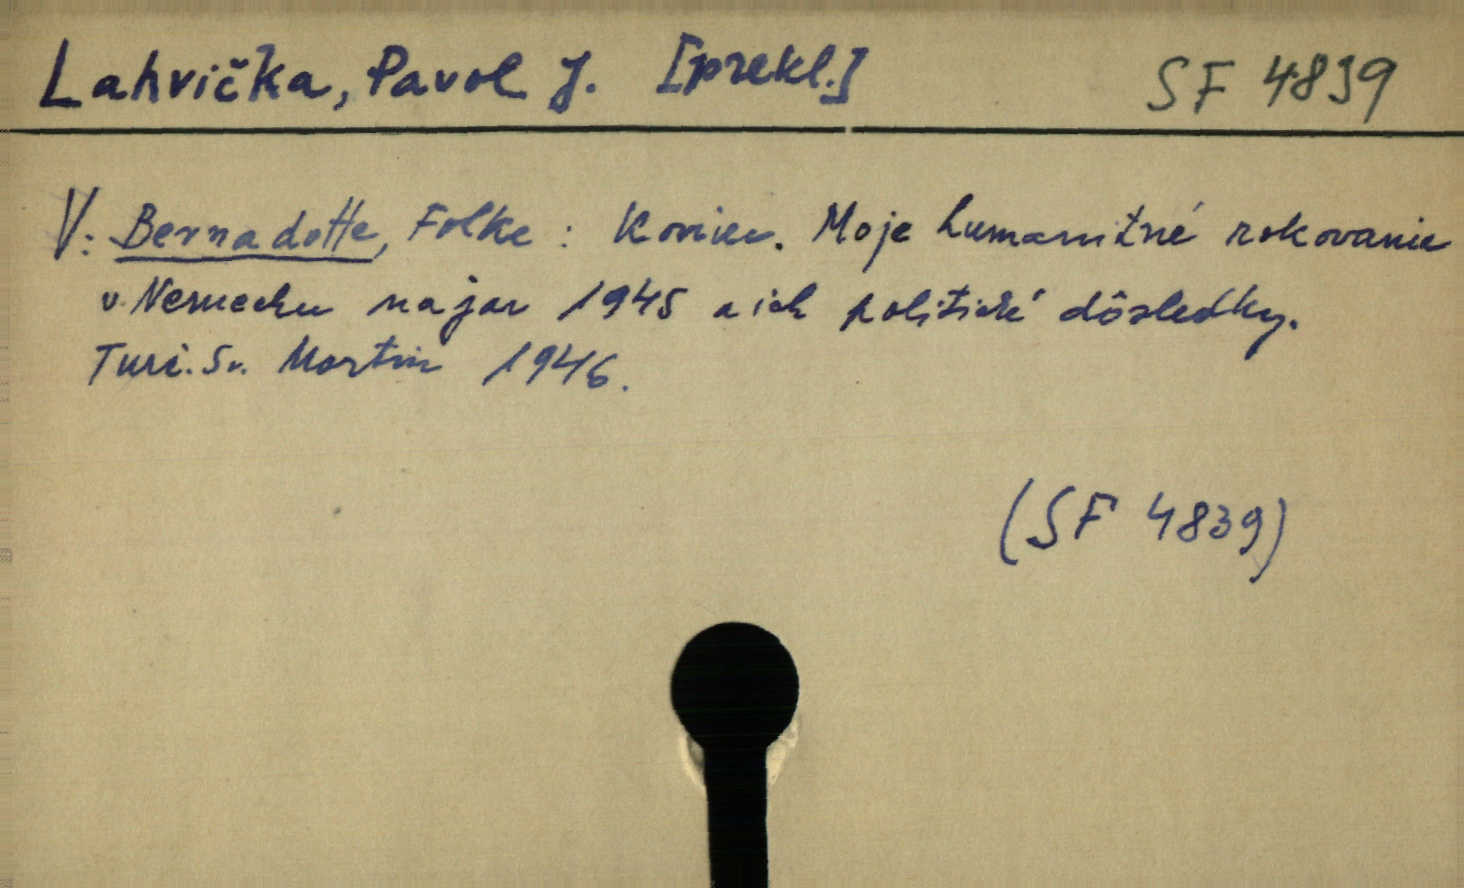 Lahvička, Pavol J. [prekl.] SF 4839
V: Bernadotte, Folke: Koniec. Moje humanitné rokovanie
v Nemecku najar 1945 a ich politické dôsledky.
Turč. Sv. Martin 1946.
(SF 4839)